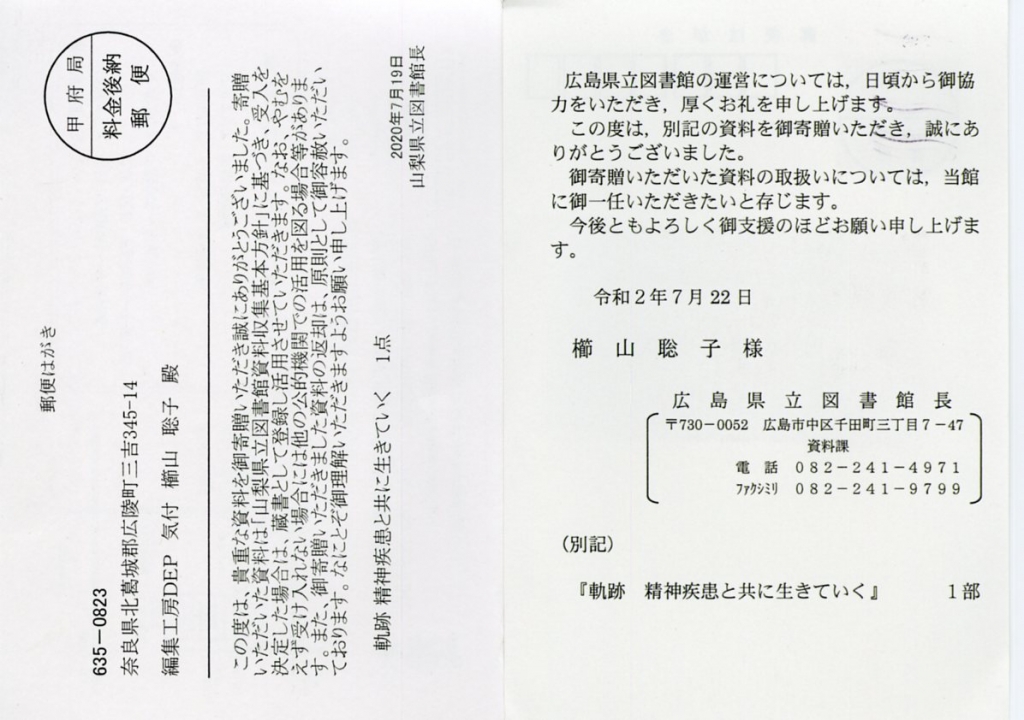 郵便はがき
甲府局
料金後納
郵便
635-0823
奈良県北葛城郡広陵町三吉345-14
編集工房DEP 気付 櫛山 聡子 殿
この度は、貴重な資料を御寄贈いただき誠にありがとうございました。寄贈
いただいた資料は「山梨県立図書館資料収集基本方針」に基づき、受入を
決定した場合は、蔵書として登録し活用させていただきます。なお、やむを
えず受け入れない場合には他の公的機関での活用を図る場合等がありま
す。また、御寄贈いただきました資料の返却は、原則として御容赦いただい
ております。なにとぞ御理解いただきますようお願い申し上げます。
軌跡 精神疾患と共に生きていく 1点
2020年7月19日
山梨県立図書館長
広島県立図書館の運営については,日頃から御協
力をいただき,厚くお礼を申し上げます。
この度は,別記の資料を御寄贈いただき,誠にあ
りがとうございました。
御寄贈いただいた資料の取扱いについては,当館
に御一任いただきたいと存じます。
今後ともよろしく御支援のほどお願い申し上げま
す。
令和2年7月22日
櫛山聡子様
広島県立図書館長
〒730-0052 広島市中区千田町三丁目7-47
資料課
電話 082-241-4971
ファクシミリ 082-241-9799
(別記)
『軌跡 精神疾患と共に生きていく』 1部